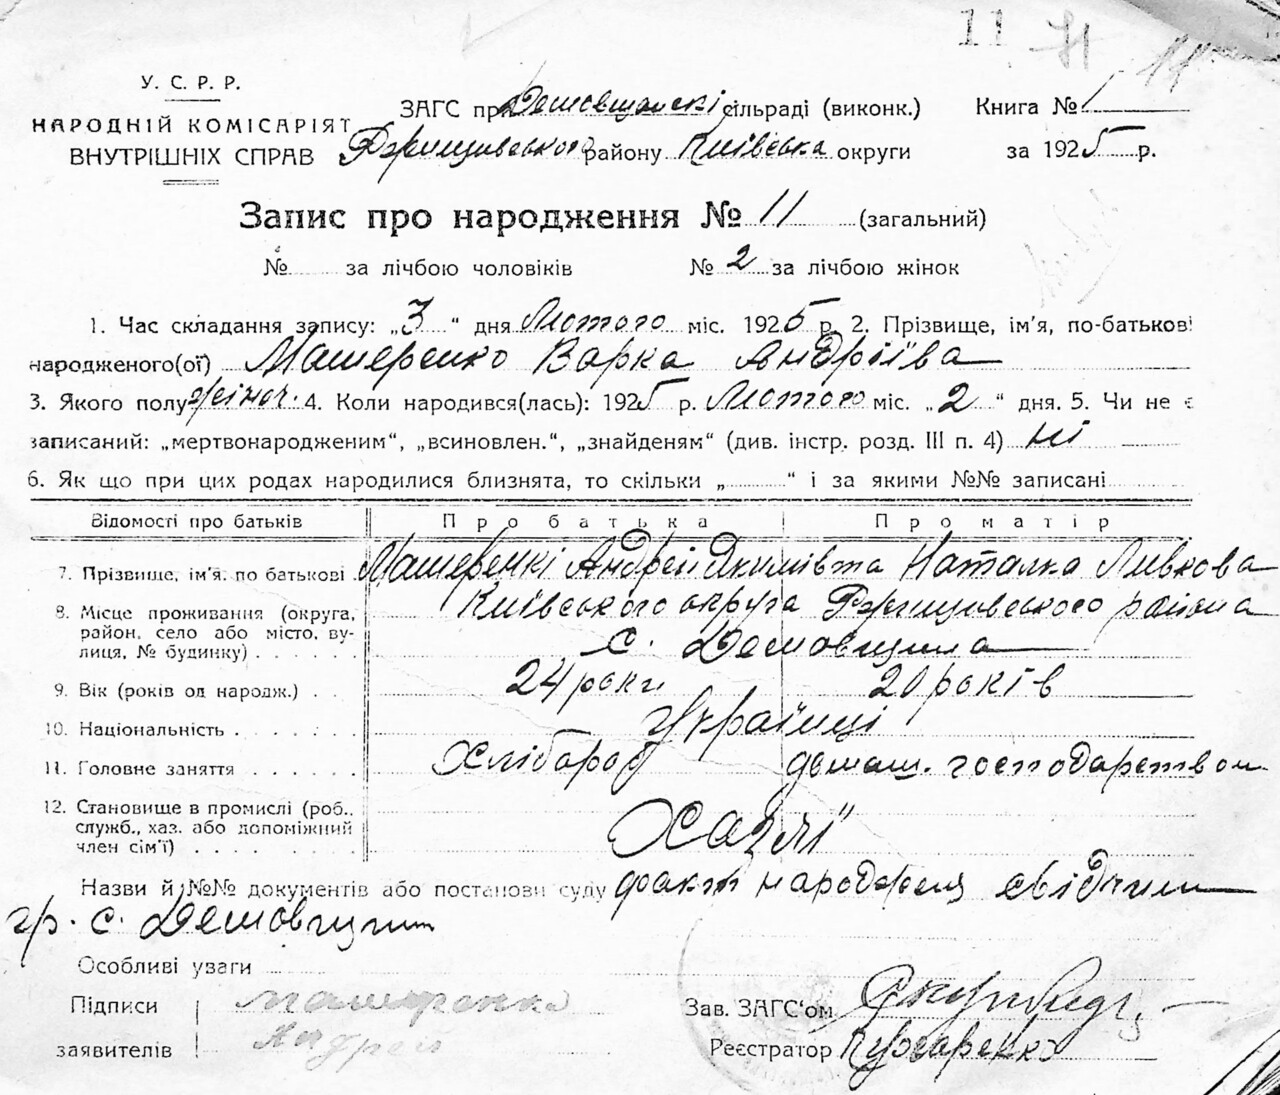 11 71 11
У. С. Р. Р.
НАРОДНІЙ КОМІСАРІЯТ
ВНУТРІШНІХ СПРАВ
ЗАГС при Демовщанскі сільраді (виконк.) Книга № 1
Ржищівського району Київська округи за 1925 р.
Запис про народження № 11 (загальний)
№ за лічбою чоловіків № 2 за лічбою жінок
1. Час складання запису: „3“ дня Лютого міс. 1925 р. 2. Прізвище, ім'я, по-батькові
народженого(ої) Машеренко Варка Андріїва
3. Якого полу жіноч. 4. Коли народився(лась): 1925 р. Лютого міс. „2“ дня. 5. Чи не є
записаний: „мертвонародженим“, „всиновлен.“, „знайденям“ (див. інстр. розд. III п. 4) ні
6. Як що при цих родах народилися близнята, то скільки „ “ і за якими №№ записані
Відомості про батьків Про батька Про матір
7. Прізвище, ім'я, по батькові Машеренкі Андрей Якимів та Наталка Ливкова
8. Місце проживання (округа, Київського округа Ржищовського района
район, село або місто, ву- с. Демовщина
лиця, № будинку)
9. Вік (років од народж.) 24 роки 20 років
10. Національність Українці
11. Головне заняття Хлібароб домаш. господарством
12. Становище в промислі (роб., Хазяї
служб., хаз. або допоміжний
член сім'ї)
Назви й №№ документів або постанови суду факт народженя свідчили
гр. с. Демовщини
Особливі уваги
Підписи Машеренко
заявителів Андрей
Зав. ЗАГС'ом
Реєстратор